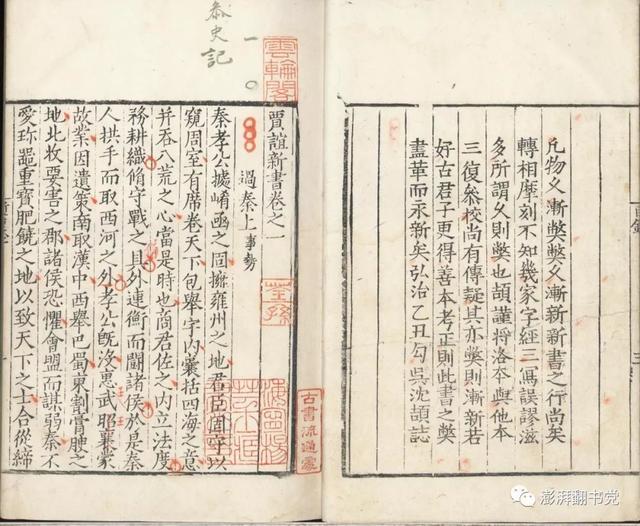 凡物久漸弊弊久漸新新書之行尚矣
轉相摩刻不知幾家字經三寫誤謬滋
多所謂久則弊也頡謹將洛本與他本
三復叅校尚有傳疑其亦弊則漸新若
好古君子更得善本考正則此書之弊
盡革而永新矣弘治乙丑勾吳沈頡誌
雲輪閣
荃孫
古書流通處
叅史記
一
賈誼新書卷之一
過秦上 事勢
秦孝公據崤函之固擁雍州之地君臣固守以
窺周室有席卷天下包舉宇内囊括四海之意
并吞八荒之心當是時也商君佐之内立法度
務耕織脩守戰之具外連衡而鬭諸侯於是秦
人拱手而取西河之外孝公既沒惠武昭襄蒙
故業因遺策南取漢中西舉巴蜀東割膏腴之
地北收要害之郡諸侯恐懼會盟而謀弱秦不
愛珍噐重寶肥饒之地以致天下之士合從締
澎湃翻书党